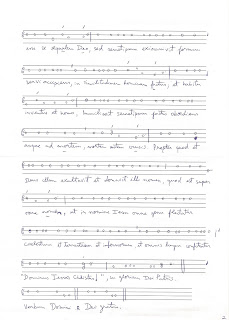 esse se aequalem Deo, sed semetipsum exinanivit formam
servi accipiens, in similitudinem hominum factus, et habitu
inventus ut homo, humiliavit semetipsum factus obediens
usque ad mortem, mortem autem crucis. Propter quod et
Deus illum exaltavit et donavit illi nomen, quod est super
omne nomen, ut in nomine Iesu omne genu flectatur
caelestium et terrestrium et infernorum, et omnis lingua confiteatur
"Dominus Iesus Christus!", in gloriam Dei Patris.
Verbum Domini. R Deo gratias.